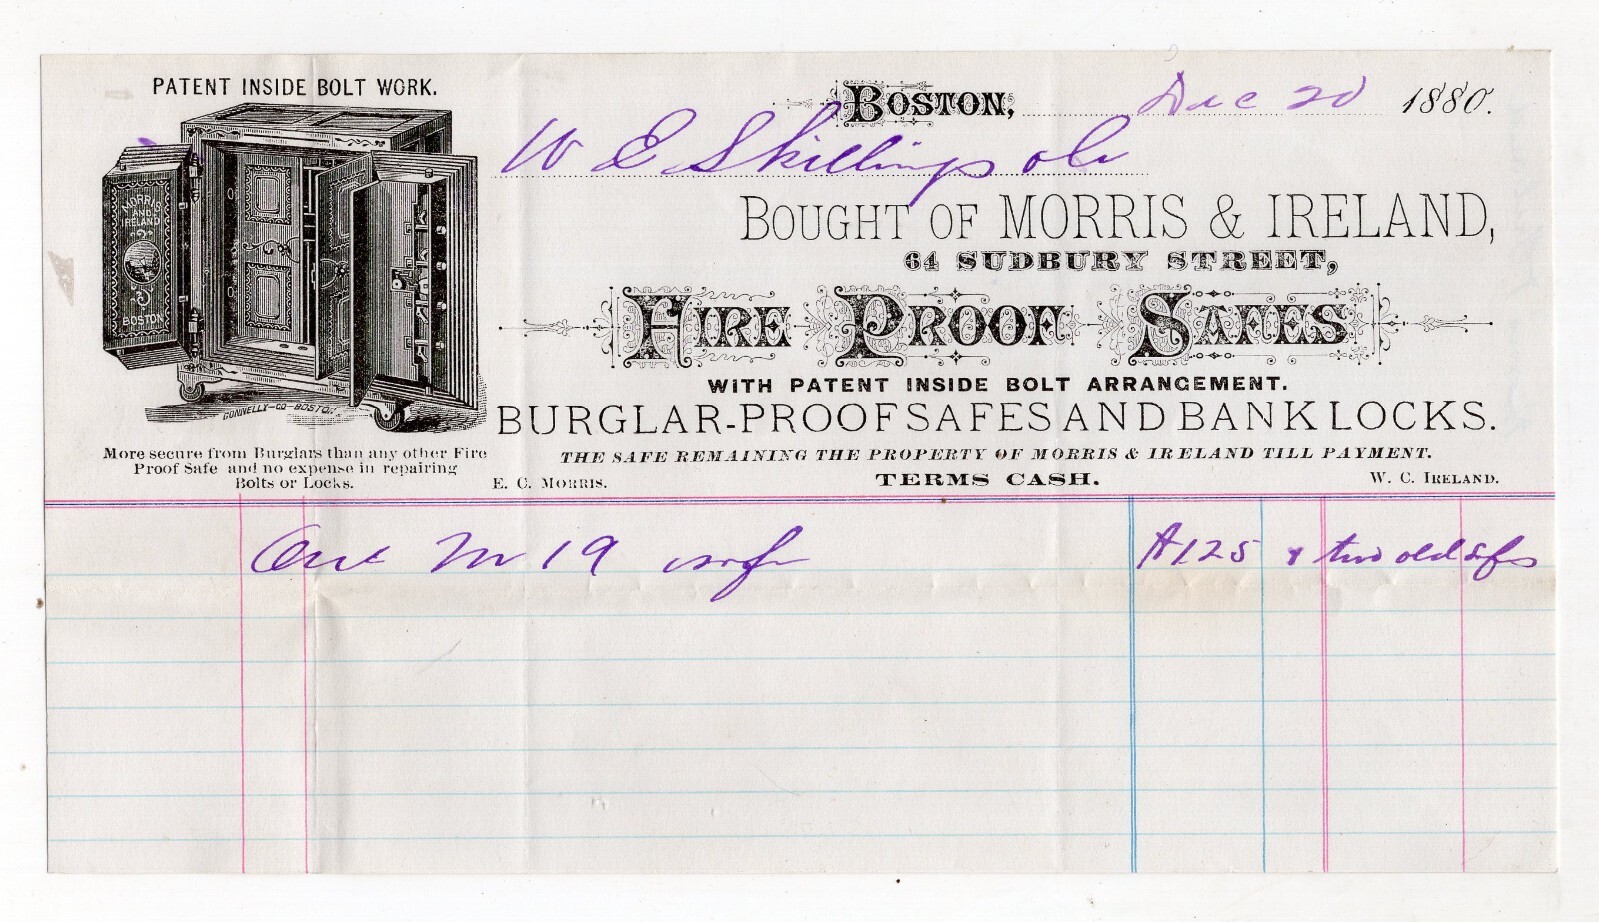 PATENT INSIDE BOLT WORK.
MORRIS
AND
IRELAND
BOSTON
CONNELLY-CO-BOSTON.
More secure from Burglars than any other Fire
Proof Safe and no expense in repairing
Bolts or Locks.
BOSTON, Dec 20 1880.
W E Skillings
BOUGHT OF MORRIS & IRELAND,
64 SUDBURY STREET,
FIRE PROOF SAFES
WITH PATENT INSIDE BOLT ARRANGEMENT.
BURGLAR-PROOF SAFES AND BANK LOCKS.
THE SAFE REMAINING THE PROPERTY OF MORRIS & IRELAND TILL PAYMENT.
E. C. MORRIS. TERMS CASH. W. C. IRELAND.
One 19 safe $125 & two old safes